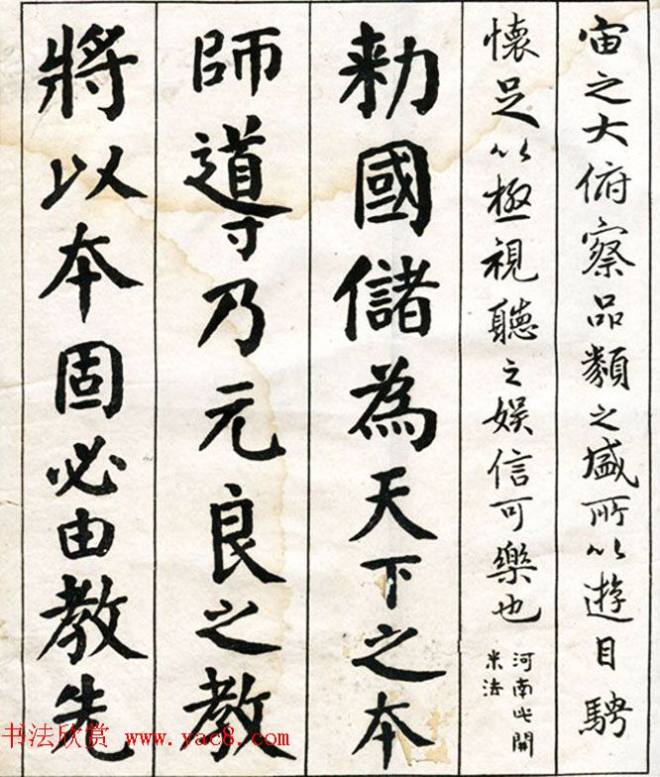 宙之大俯察品類之盛所以遊目騁
懷足以極視聽之娛信可樂也
河南此開
米法
勅國儲為天下之本
師導乃元良之教
將以本固必由教先
书法欣赏 www.yac8.com